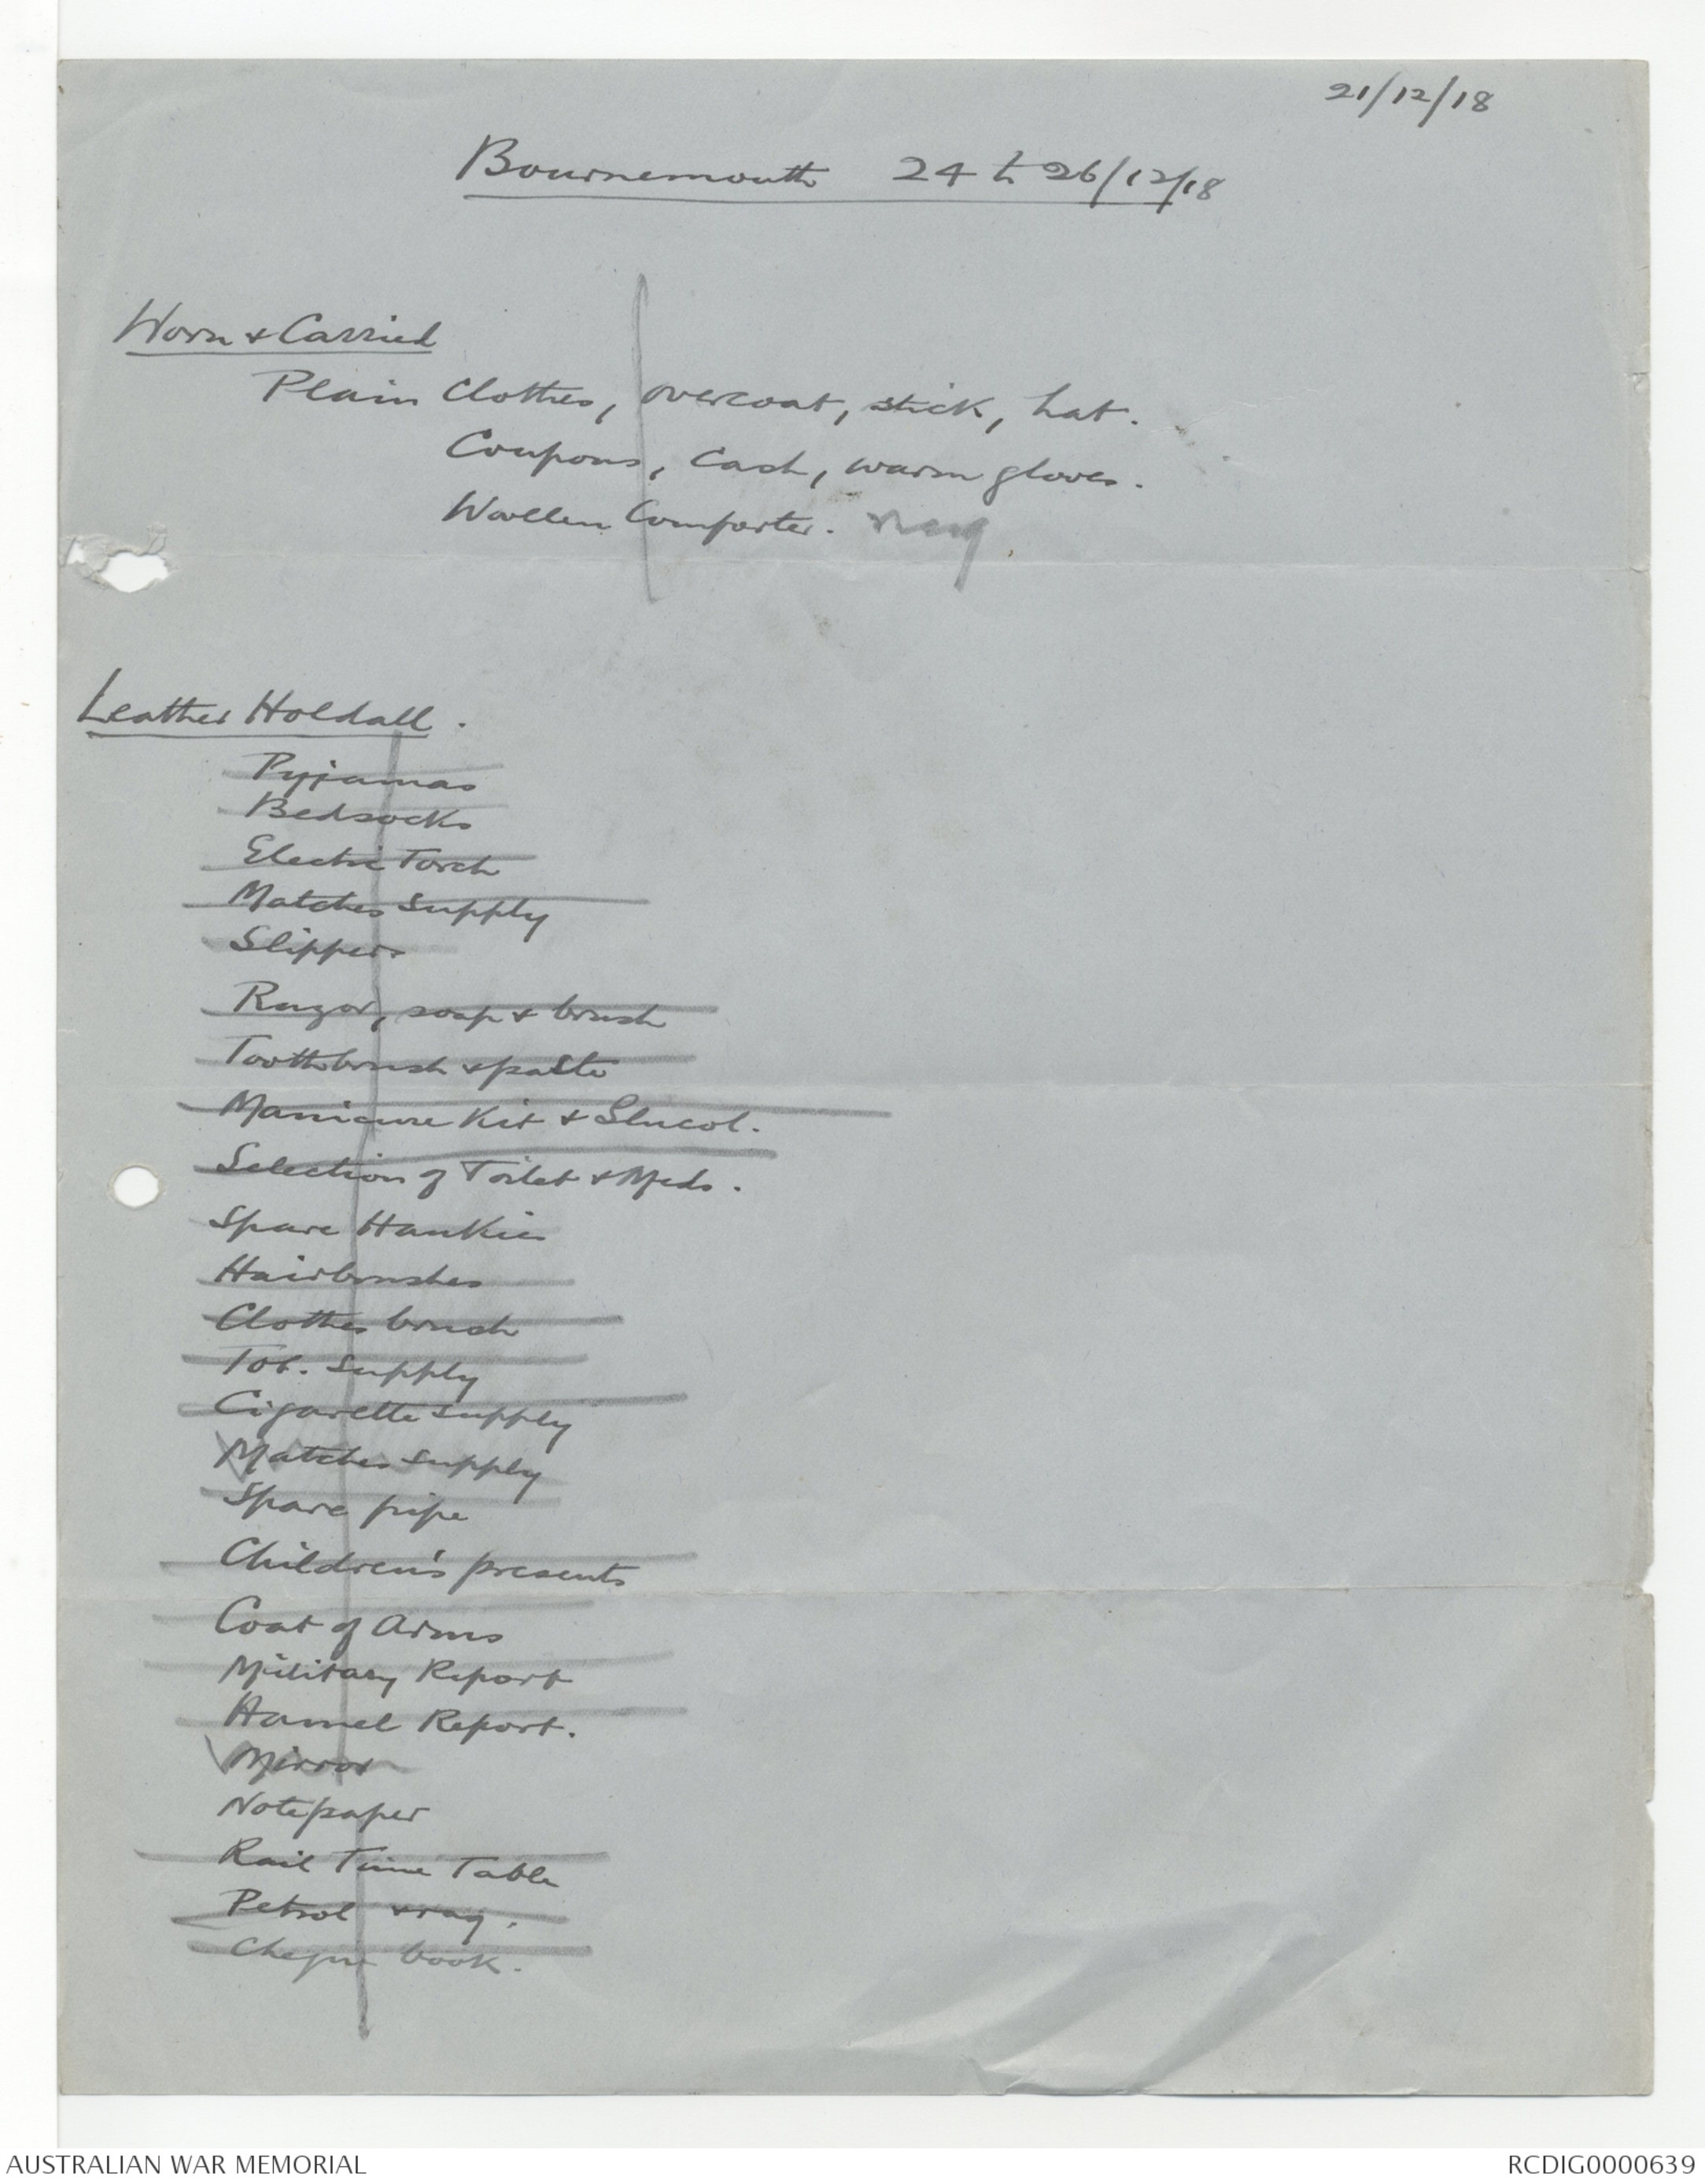 21/12/18
Bournemouth 24 to 26/12/18
Worn & Carried
Plain Clothes, overcoat, stick, hat.
Coupons, Cash, warm gloves.
Woollen Comforter.
Leather Holdall.
Pyjamas
Bedsocks
Electric Torch
Matches Supply
Slippers
Razor, soap & brush
Toothbrush & paste
Manicure Kit &
Selection of Toilet & Meds.
Spare Hankies
Hairbrushes
Clothes brush
Tob. Supply
Cigarette supply
Matches supply
Spare pipe
Children's presents
Coat of Arms
Military Report
Hamel Report.
Mirror
Notepaper
Rail Time Table
Petrol & rag.
Cheque book.
AUSTRALIAN WAR MEMORIAL
RCDIG0000639